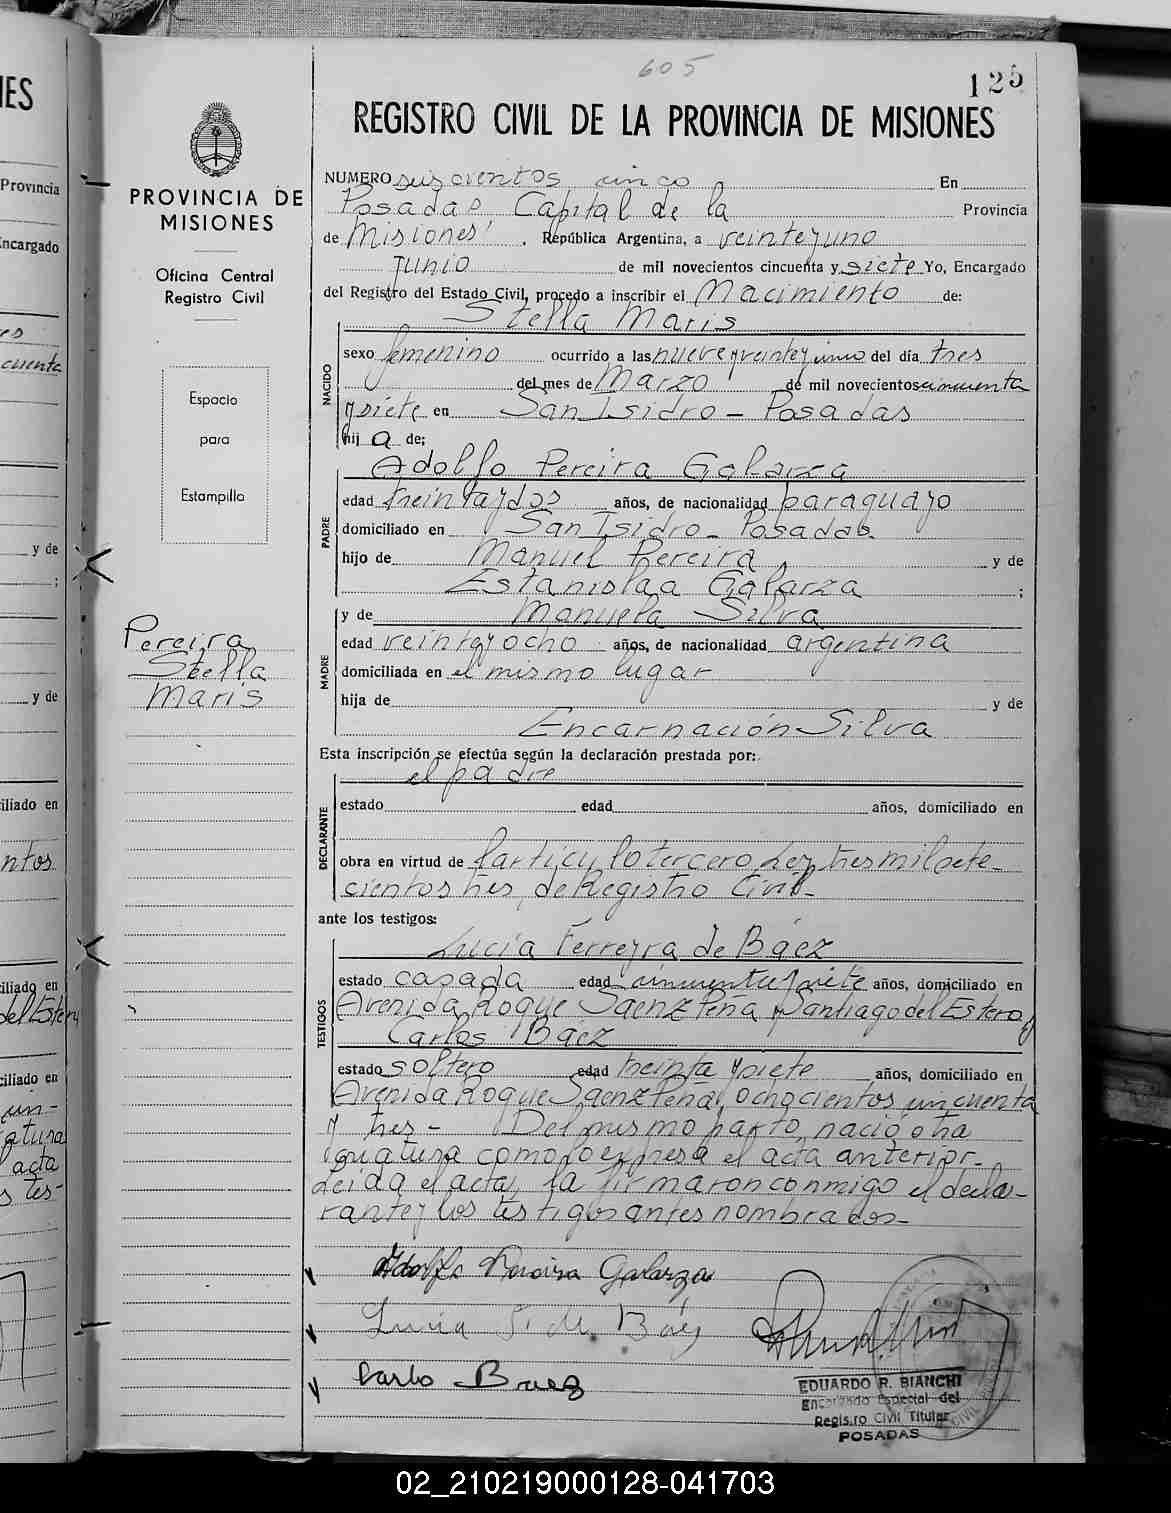 605
125
REGISTRO CIVIL DE LA PROVINCIA DE MISIONES
PROVINCIA DE
MISIONES
Oficina Central
Registro Civil
Espacio
para
Estampilla
Pereira
Stella
Maris
NUMERO seiscientos cinco En
Posadas, Capital de la Provincia
de Misiones, República Argentina, a veinteyuno
Junio de mil novecientos cincuenta y siete Yo, Encargado
del Registro del Estado Civil, procedo a inscribir el Nacimiento de:
Stella Maris
NACIDO
sexo femenino ocurrido a las nueve y veinteycinco del día tres
del mes de Marzo de mil novecientos cincuenta
y siete en San Isidro - Posadas
hij a de;
Adolfo Pereira Galarza
PADRE
edad treintaydos años, de nacionalidad paraguayo
domiciliado en San Isidro - Posadas
hijo de Manuel Pereira y de
Estanislaa Galarza ;
y de Manuela Silva
MADRE
edad veinteyocho años, de nacionalidad argentina
domiciliada en el mismo lugar
hija de y de
Encarnación Silva
Esta inscripción se efectúa según la declaración prestada por:
el padre
DECLARANTE
estado edad años, domiciliado en
obra en virtud de l'articulo tercero, Ley tres mil sete-
cientos tres, de Registro Civil-
ante los testigos:
Lucía Ferreyra de Báez
TESTIGOS
estado casada edad cincuenta y siete años, domiciliado en
Avenida Roque Saenz Peña y Santiago del Estero y
Carlos Báez
estado soltero edad treinta y siete años, domiciliado en
Avenida Roque Saenz Peña, ochocientos cincuenta
y tres - Del mismo parto, nació otra
criatura como lo expresa el acta anterior-
Leída el acta, la firmaron conmigo el decla-
rante y los testigos antes nombrados-
Adolfo Pereira Galarza
Lucia F. de Báez
Carlo Baez
EDUARDO R. BIANCHI
Encargado Especial del
Registro Civil Titular
POSADAS
IES
Provincia
ncargado
cuenta
y de
;
y de
iliado en
ntos
iliado en
del Estero
ciliado en
cin-
atura
acta
s tes-
02_210219000128-041703